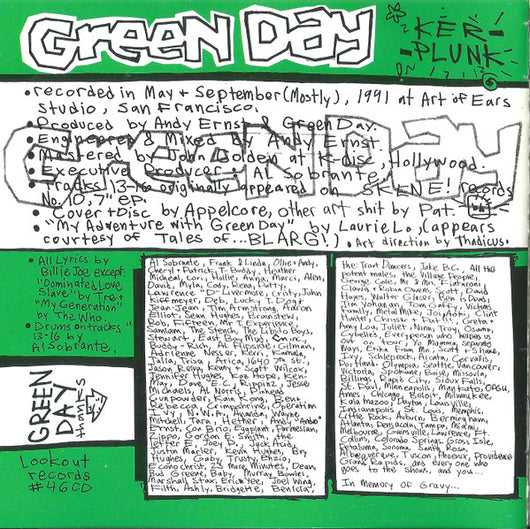 Green Day
KER-
PLUNK
• recorded in May + September (Mostly), 1991 at Art of Ears
Studio, San Francisco.
• Produced by Andy Ernst & Green Day.
• Engineered & Mixed by Andy Ernst.
• Mastered by John Golden at K-disc, Hollywood.
• Executive Producer: Al Sobrante.
• Tracks 13-16 originally appeared on SKENE! records
No. 10, 7" EP.
• Cover + Disc by Appelcore, other art shit by Pat.
• "My Adventure with Green Day" by Laurie L. (appears
courtesy of Tales of... BLARG!) • Art direction by Thadicus.
Green Day
• All Lyrics by
Billie Joe except:
"Dominated Love
Slave" by Tre +
"My Generation"
by The Who.
• Drums on tracks
13-16 by
Al Sobrante.
GREEN
DAY
thanks
Lookout
records
#46CD
Al Sobrante, Frank & Linda, Ollie + Andy,
Cheryl + Patrick, T. Buddy, Heather,
Micheal, Lori, Hollie, Anna, Marci, Allen,
David, Myla, Cody, Rena, Patty,
Lawrence "D" Livermore, Cristy, John
Kiffmeyer, Deb, Lucky, T. Dog +
Jean-Jean, Tim Armstrong, Aaron
Elliott, Sean Hughes, Brainstew,
Bob, Fifteen, Mr. T Experience,
Samiam, The Stench, The Libido Boys,
Stewart, East Bay Mud, Emily,
Buddy + Nick, Al Fireside, Gilman,
Adrienne Nesser, Kerri, Kamala,
Talla, Trisa, Arica, 1640 7th St.,
Jason Relva, Kenny + Scott Wilcox,
Jennifer Hughes, Kee Hope, Kevin
May, Dave E.C., Rippitz, Jesse
Michaels, Al Norris, Pinhead
Gunpowder, Kain Kong, Ben,
Rebecca, Crimpshrine, Operation
Ivy, Neurosis, Amanda, Wayne
Mitchell, Tara, Hether, Andy "Andro"
Ernst, Con Brio, Eggplant, Parmesian,
Zippy, Gordon E. Smith, the
Jefe E. Joe E., Jack Ash,
Justin Marler, Kevin Hughes, Bry
Hughes, Gaby, Trusty, Enzio,
Econochrist, 23 More Minutes, Dean,
Jud Greene, Baby, Murray Bowles,
Marshall Stax, Erick Yee, Joel Wing,
Filth, Ashly, Bridgette, Benicia,
the Trout Dancers, Jake B.C., All the
George Cole, Mr. &
David
Hayes, Walter Glaser, Ben
Jim Yohagan, Tom Coffey, Victims
Family, Metal Mike,
Amy Lou, Juliet, Nina, Troy, Osamu,
Cybelles, Everyperson who helped us
out on tour,
Ivy, Schlepprock, Arcata, Corvallis,
Portland, Olympia, Seattle, Vancouver,
Victoria, Spokane, Butte, Missoula,
Billings, Rapid City, Sioux Falls,
St. Paul, Minneapolis, Mankato,
Ames, Chicago, Beloit, Milwaukee,
Kalamazoo, Dayton, Louisville,
Indianapolis, St. Louis, Memphis,
Little Rock, Auburn, Birmingham,
Atlanta, Pensacola, Tampa, Miami,
Melbourne, Gainesville, Lawrence, Ft.
Collins, Colorado Springs, Gross Isle,
Petaluma, Sonoma, Santa Rosa,
Albequerque, Tucson, Phoenix, Providence
Grand Rapids, and every one who
goes to the shows, and you...
In Memory of Gravy...